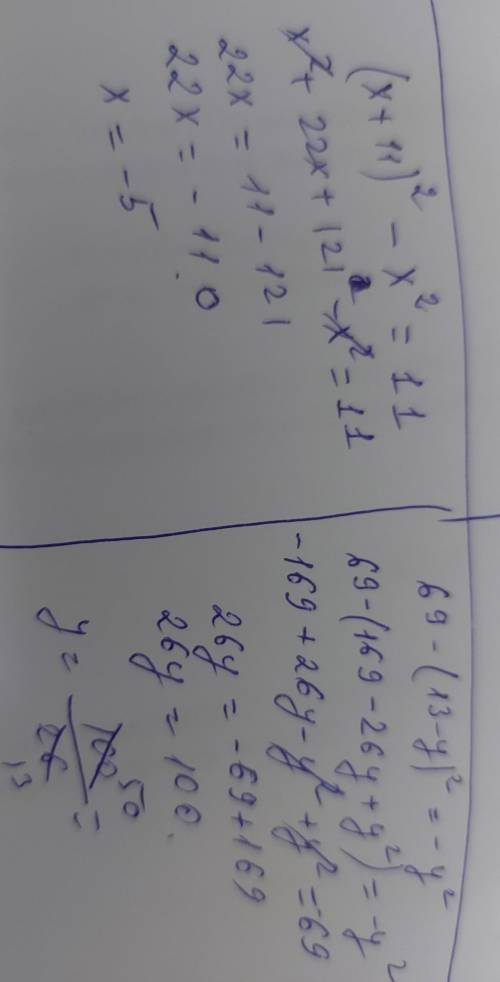 (x + 11)² - x² = 11
x² + 22x + 121 - x² = 11
22x = 11 - 121
22x = - 110
x = -5
69 - (13-y)² = -y²
69 - (169 - 26y + y²) = -y²
-169 + 26y - y² + y² = -69
26y = -69 + 169
26y = 100
y = 100/26 =
50
13